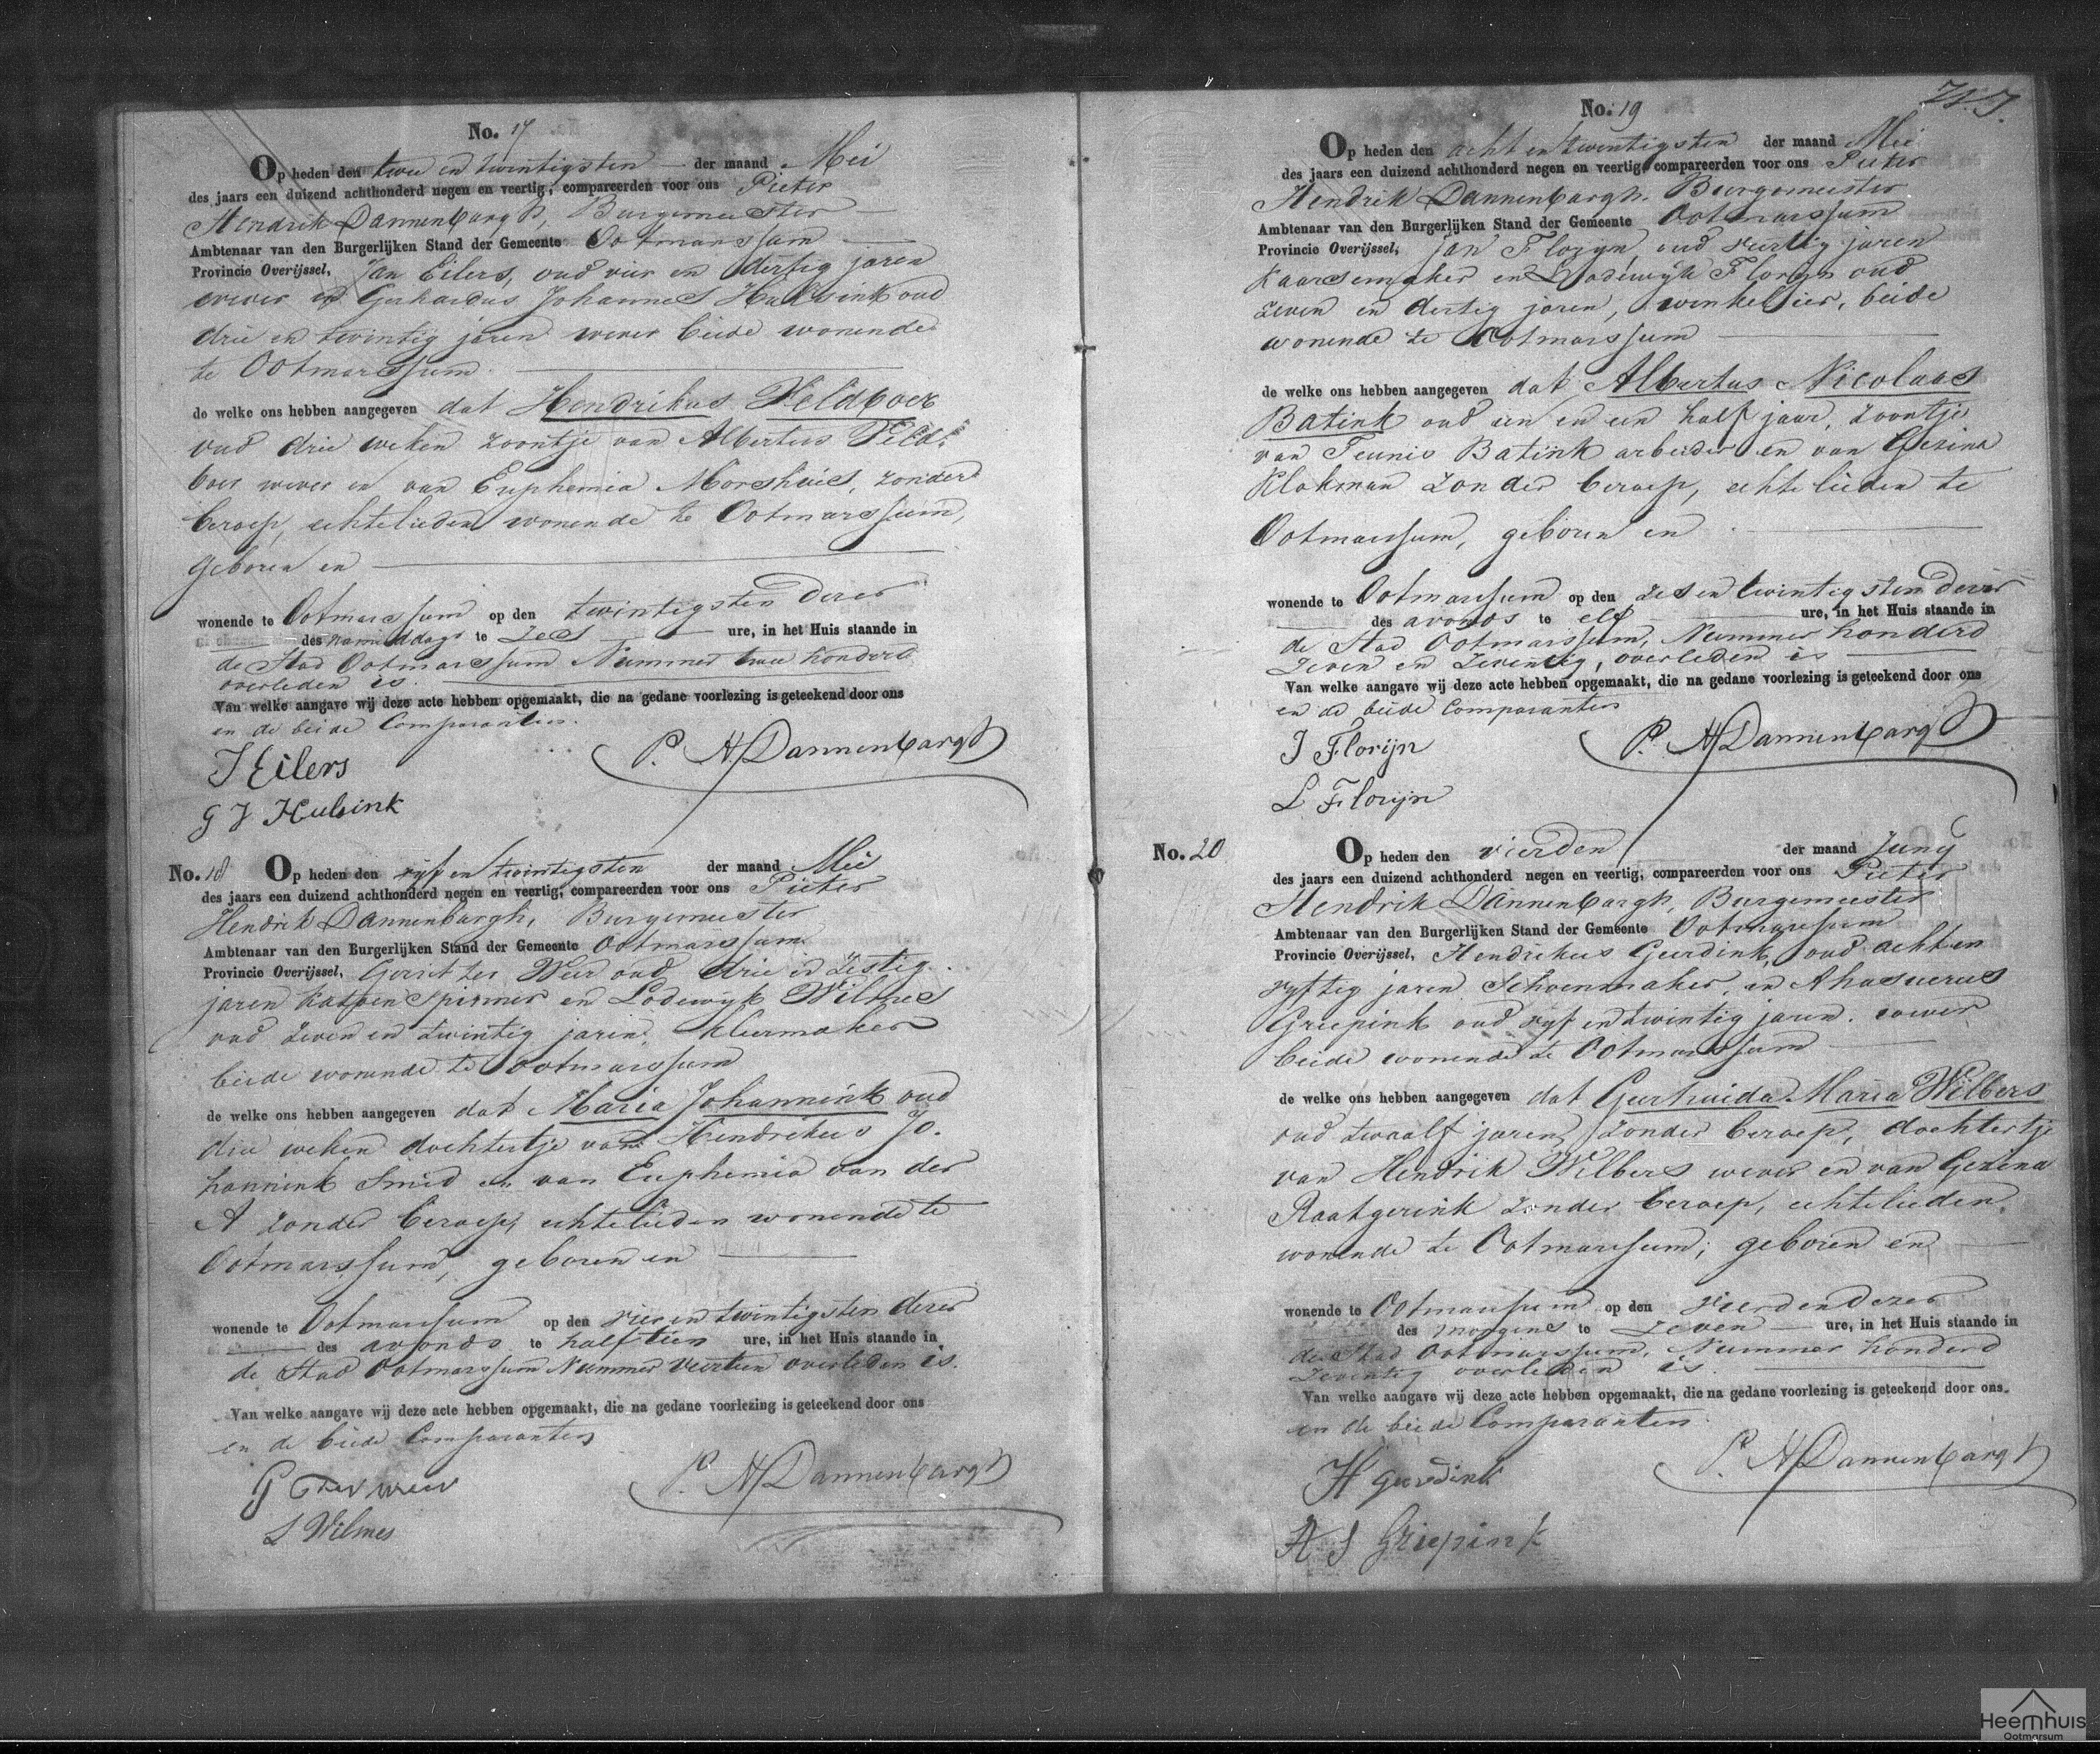 No. 17
Op heden den twee en twintigsten der maand Mei
des jaars een duizend achthonderd negen en veertig, compareerden voor ons Pieter
Hendrik Dannenbargh, Burgemeester
Ambtenaar van den Burgerlijken Stand der Gemeente Ootmarssum
Provincie Overijssel, Jan Eilers, oud vier en dertig jaren
wever en Gerhardus Johannes Hulsink oud
drie en twintig jaren wever beide wonende
te Ootmarssum
de welke ons hebben aangegeven dat Hendrikus Veldboer
oud drie weken zoontje van Albertus Veld-
boer wever en van Euphemia Morshuis, zonder
beroep, echtelieden wonende te Ootmarssum,
geboren en
wonende te Ootmarssum op den twintigsten dezer
des namiddags te zes ure, in het Huis staande in
de Stad Ootmarssum Nummer twee honderd
overleden is.
Van welke aangave wij deze acte hebben opgemaakt, die na gedane voorlezing is geteekend door ons
en de beide Comparanten.
J Eilers
P. H. Dannenbargh
G J Hulsink
No. 18 Op heden den vyf en twintigsten der maand Mei
des jaars een duizend achthonderd negen en veertig, compareerden voor ons Pieter
Hendrik Dannenbargh, Burgemeester
Ambtenaar van den Burgerlijken Stand der Gemeente Ootmarssum
Provincie Overijssel, Gerrit ter Weer oud drie en zestig
jaren katoen spinner en Lodewyk Wilmes
oud zeven en twintig jaren, kleermaker
beide wonende te Ootmarssum
de welke ons hebben aangegeven dat Maria Johannink oud
drie weken dochtertje van Hendrikus Jo-
hannink Smid en van Euphemia van der
A zonder beroep, echtelieden wonende te
Ootmarssum, geboren en
wonende te Ootmarssum op den vier en twintigsten dezer
des avonds te half tien ure, in het Huis staande in
de Stad Ootmarssum Nummer veertien overleden is.
Van welke aangave wij deze acte hebben opgemaakt, die na gedane voorlezing is geteekend door ons
en de beide Comparanten
G Ter weer
P. H. Dannenbargh
L Wilmes
No. 19
Op heden den acht en twintigsten der maand Mei
des jaars een duizend achthonderd negen en veertig, compareerden voor ons Pieter
Hendrik Dannenbargh, Burgemeester
Ambtenaar van den Burgerlijken Stand der Gemeente Ootmarssum
Provincie Overijssel, Jan Floryn oud veertig jaren
kaarsemaker en Lodewyk Floryn oud
zeven en dertig jaren, winkelier, beide
wonende te Ootmarssum
de welke ons hebben aangegeven dat Albertus Nicolaas
Batink oud een en een half jaar, zoontje
van Teunis Batink arbeider en van Gezina
Klokman zonder beroep, echtelieden te
Ootmarssum, geboren en
wonende te Ootmarssum op den zes en twintigsten dezer
des avonds te elf ure, in het Huis staande in
de Stad Ootmarssum, Nummer honderd
zeven en zeventig, overleden is
Van welke aangave wij deze acte hebben opgemaakt, die na gedane voorlezing is geteekend door ons
en de beide Comparanten
J Florijn
P. H. Dannenbargh
L Florijn
No. 20 Op heden den vierden der maand Juny
des jaars een duizend achthonderd negen en veertig, compareerden voor ons Pieter
Hendrik Dannenbargh, Burgemeester
Ambtenaar van den Burgerlijken Stand der Gemeente Ootmarssum
Provincie Overijssel, Hendrikus Geerdink, oud acht en
vyftig jaren Schoenmaker, en Ahasuerus
Griepink oud vyf en twintig jaren, wever
beide wonende te Ootmarssum
de welke ons hebben aangegeven dat Geertruida Maria Wilbers
oud twaalf jaren, zonder beroep, dochtertje
van Hendrik Wilbers wever en van Gezina
Raatgerink zonder beroep, echtelieden,
wonende te Ootmarssum, geboren en
wonende te Ootmarssum op den vierden dezer
des morgens te zeven ure, in het Huis staande in
de Stad Ootmarssum, Nummer honderd
zeventig overleden is
Van welke aangave wij deze acte hebben opgemaakt, die na gedane voorlezing is geteekend door ons
en de beide Comparanten
H Geerdink
P. H. Dannenbargh
A S Griepink
Heemhuis
Ootmarsum